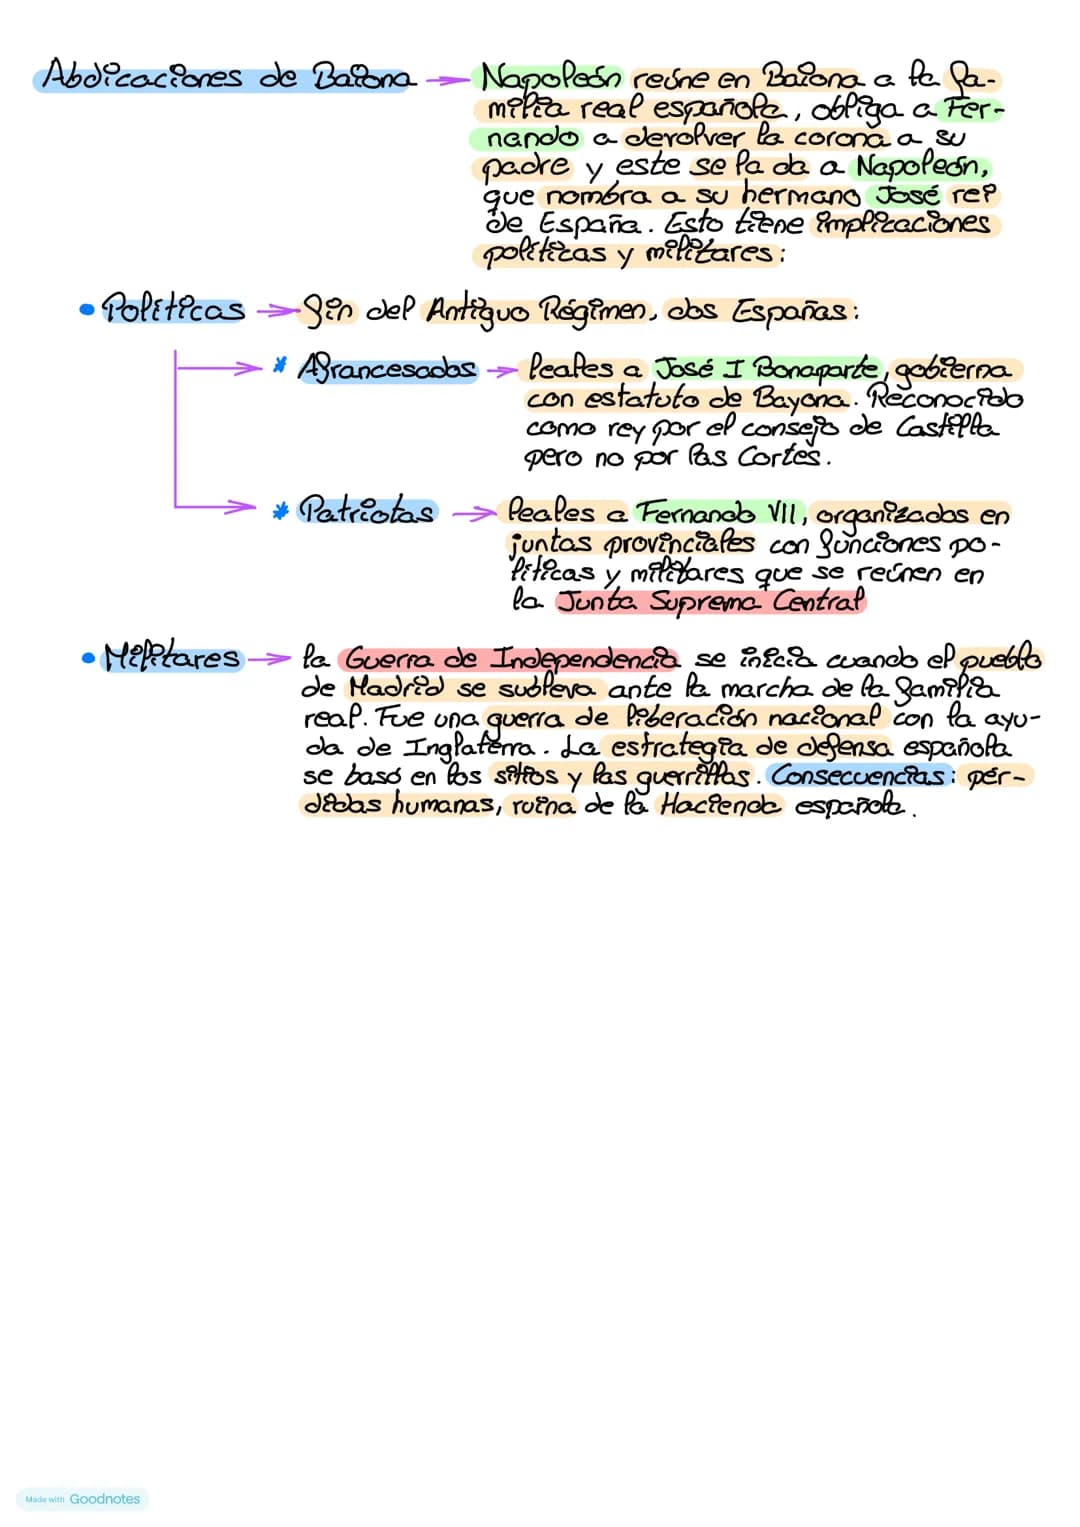 Abdicaciones de Baiona → Napoleón reúne en Baiona a la fa-
milia real española, obliga a Fer-
nando a devolver la corona a su
padre y este se la da a Napoleón,
que nombra a su hermano José rei
de España. Esto tiene implicaciones
políticas y militares:
• Políticas → fin del Antiguo Régimen, dos Españas:
* Afrancesados → leales a José I Bonaparte, gobierna
con estatuto de Bayona. Reconocido
como rey por el consejo de Castilla
pero no por las Cortes.
* Patriotas → leales a Fernando VII, organizados en
juntas provinciales con funciones po-
líticas y militares que se reúnen en
la Junta Suprema Central
• Militares → la Guerra de Independencia se inicia cuando el pueblo
de Madrid se subleva ante la marcha de la familia
real. Fue una guerra de liberación nacional con la ayu-
da de Inglaterra. La estrategia de defensa española
se basó en los sitios y las guerrillas. Consecuencias: pér-
didas humanas, ruina de la Hacienda española.
Made with Goodnotes